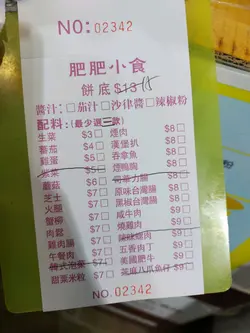 NO: 02342
肥肥小食
餅底 $13 15
醬汁:□茄汁□沙律醬□辣椒粉
配料:(最少選三款)
生菜 $3□ 煙肉 $8□
蕃茄 $4□ 漢堡扒 $8□
雞蛋 $5□ 吞拿魚 $8□
$5□ 煙鴨胸 $8□
蘑菇 $6□ 芝士腸 $8□
芝士 $7□ 原味台灣腸 $8□
火腿 $7□ 黑椒台灣腸 $8□
蟹柳 $7□ 咸牛肉 $9□
肉鬆 $7□ 燒雞肉 $9□
雞肉腸 $7□ $9□
午餐肉 $7□ 五香肉丁 $9□
韓式泡菜 $7□ 美國肥牛 $9□
甜粟米粒 $7□ 茶麻八爪魚仔 $9□
NO. 02342